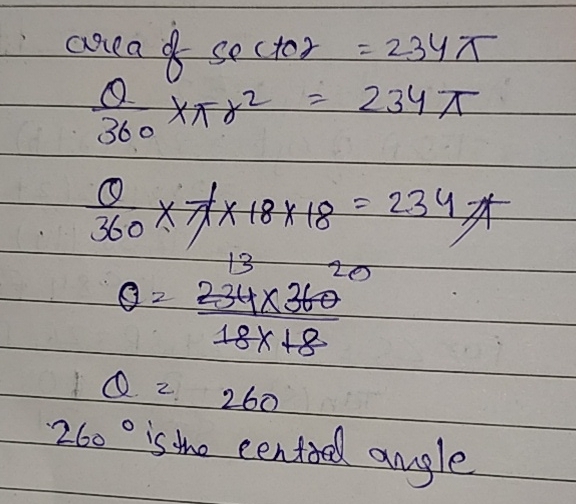 area of sector = 234π
θ/360 × πr² = 234π
θ/360 × π × 18 × 18 = 234π
13 20
θ = 234 × 360 / 18 × 18
θ = 260
260° is the central angle